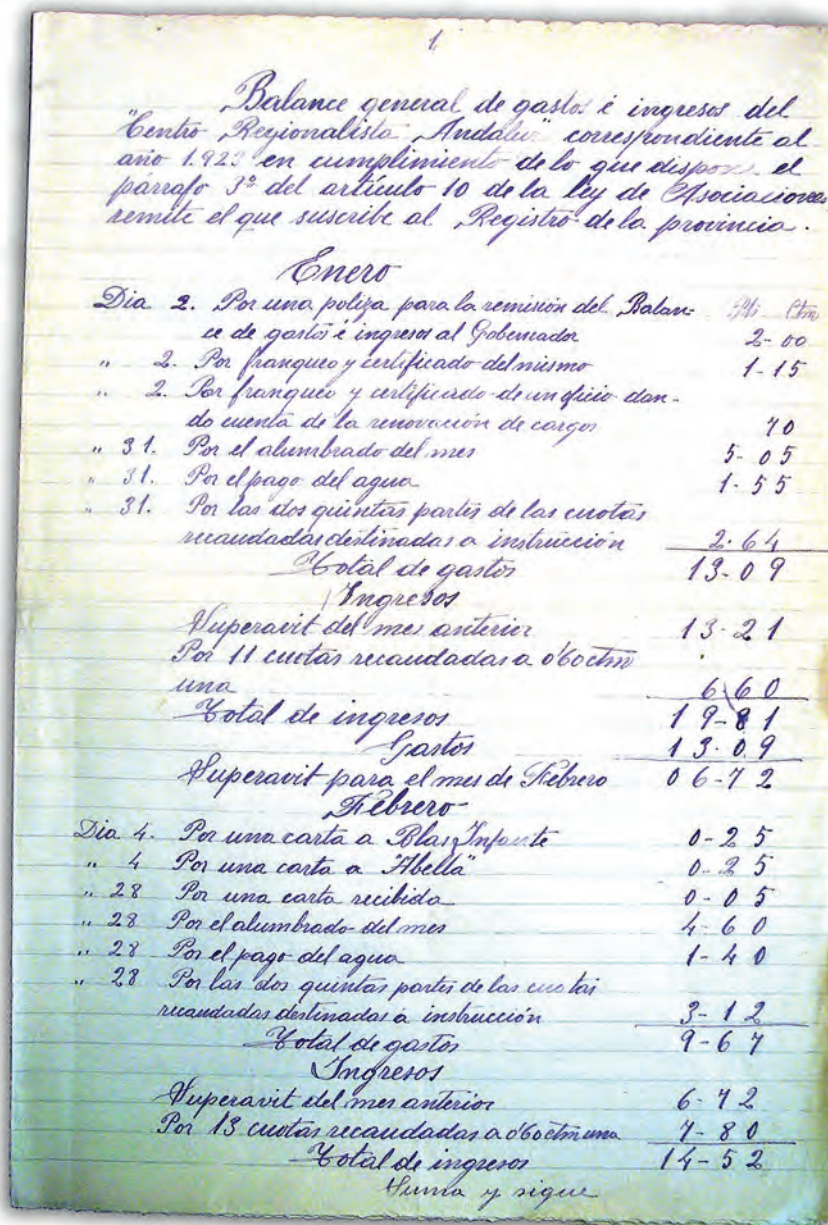 1
Balance general de gastos é ingresos del
"Centro Regionalista Andaluz" correspondiente al
año 1.923 en cumplimiento de lo que dispone el
párrafo 3º del artículo 10 de la ley de Asociaciones
remite el que suscribe al Registro de la provincia.
Enero
Dia 2. Por una poliza para la remisión del Balan- Pts Ctm
ce de gastos é ingresos al Gobernador 2-00
" 2. Por franqueo y certificado del mismo 1-15
" 2. Por franqueo y certificado de un oficio dan-
do cuenta de la renovación de cargos 70
" 31. Por el alumbrado del mes 5-05
" 31. Por el pago del agua 1-55
" 31. Por las dos quintas partes de las cuotas
recaudadas destinadas a instrucción 2-64
Total de gastos 13-09
Ingresos
Superavit del mes anterior 13-21
Por 11 cuotas recaudadas a 0'60 ctm
una 6 60
Total de ingresos 19-81
Gastos 13-09
Superavit para el mes de Febrero 06-72
Febrero
Dia 4. Por una carta a Blas Infante 0-25
" 4 Por una carta a "Abella" 0-25
" 28 Por una carta recibida 0-05
" 28 Por el alumbrado del mes 4-60
" 28 Por el pago del agua 1-40
" 28 Por las dos quintas partes de las cuotas
recaudadas destinadas a instrucción 3-12
Total de gastos 9-67
Ingresos
Superavit del mes anterior 6-72
Por 13 cuotas recaudadas a 0'60 ctm una 7-80
Total de ingresos 14-52
Suma y sigue